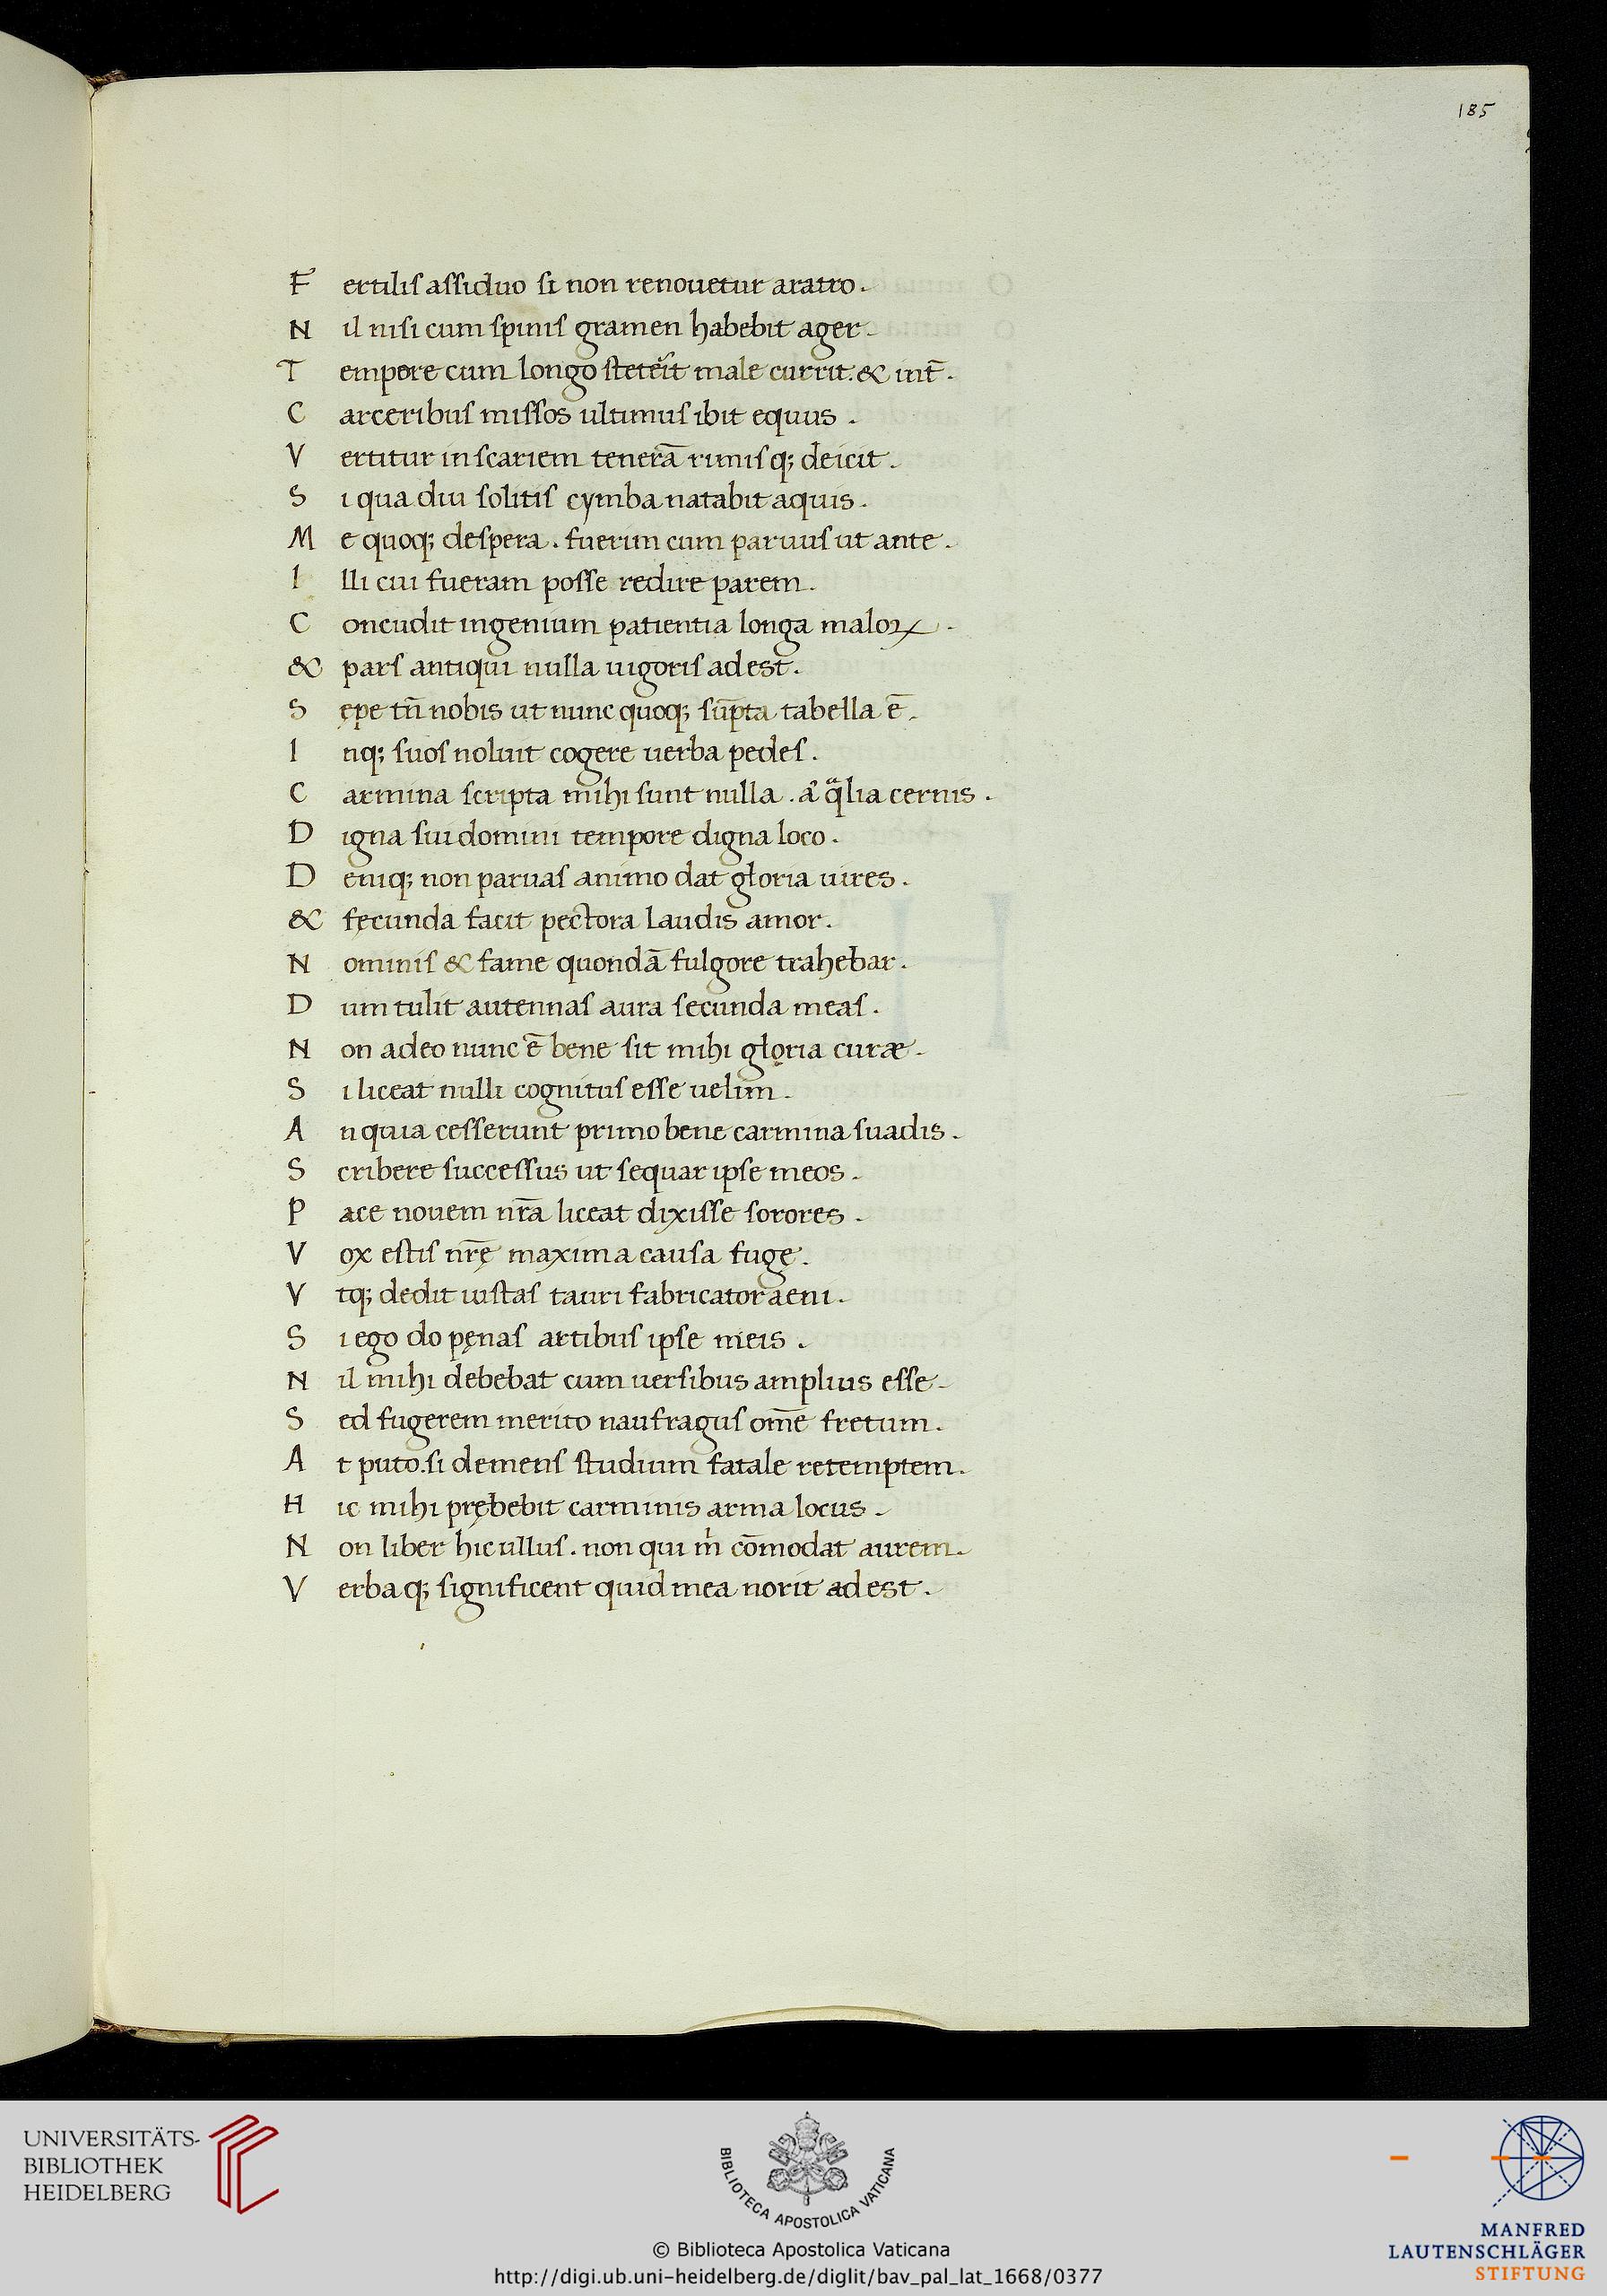 185
F ertilis assiduo si non renouetur aratro.
N il nisi cum spinis gramen habebit ager.
T empore cum longo steterit male currit. & int̄.
C arceribus missos ultimus ibit equus.
V ertitur in scariem tenerā rimisq; deicit.
S i qua diu solitis cymba natabit aquis.
M e quoq; despera. fuerim cum paruus ut ante.
I lli cui fueram posse redire parem.
C oncudit ingenium patientia longa maloꝝ.
& pars antiqui nulla uigoris adest.
S ępe tn̄ nobis ut nunc quoq; sūpta tabella ē.
I nq; suos noluit cogere uerba pedes.
C armina scripta mihi sunt nulla. a᷒ qͣlia cernis.
D igna sui domini tempore digna loco.
D eniq; non paruas animo dat gloria uires.
& fęcunda facit pectora laudis amor.
N ominis & fame quondā fulgore trahebar.
D um tulit autennas aura secunda meas.
N on adeo nunc ē bene sit mihi gloria curæ.
S i liceat nulli cognitus esse uelim.
A n quia cesserunt primo bene carmina suadis.
S cribere successus ut sequar ipse meos.
P ace nouem nr̄a liceat dixisse sorores.
V ox estis nr̄ę maxima causa fugę.
V tq; dedit iustas tauri fabricator aeni.
S i ego do pęnas artibus ipse meis.
N il mihi debebat cum uersibus amplius esse.
S ed fugerem merito naufragus om̄e fretum.
A t puto. si demens studium fatale retemptem.
H ic mihi prębebit carminis arma locus.
N on liber hic ullus. non qui m̍ cōmodat aurem.
V erbaq; significent quid mea norit adest.
UNIVERSITÄTS-
BIBLIOTHEK
HEIDELBERG
BIBLIOTECA APOSTOLICA VATICANA
© Biblioteca Apostolica Vaticana
http://digi.ub.uni-heidelberg.de/diglit/bav_pal_lat_1668/0377
MANFRED
LAUTENSCHLÄGER
STIFTUNG